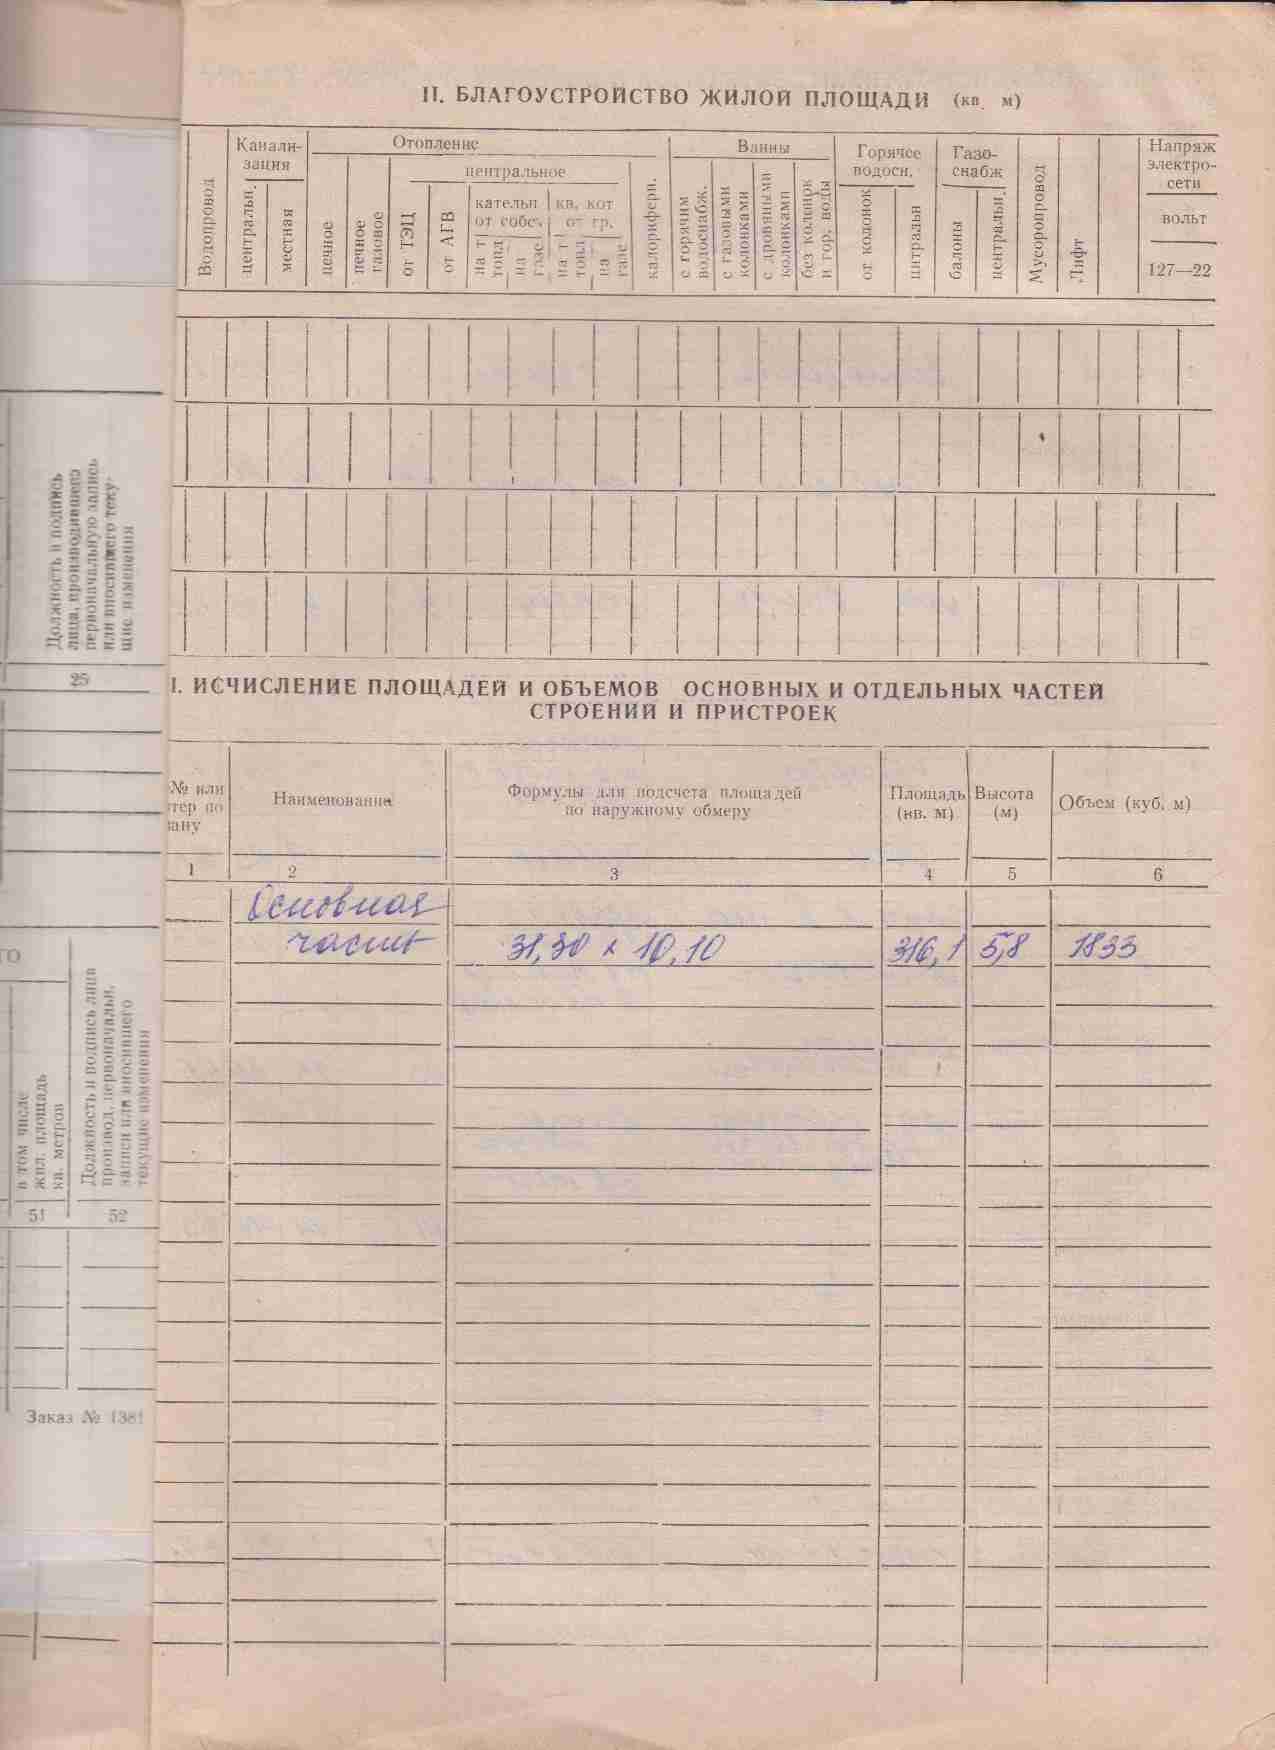 II. БЛАГОУСТРОЙСТВО ЖИЛОЙ ПЛОЩАДИ (кв. м)
Водопровод
Канали-
зация
центральн.
местная
Отопление
печное
печное
газовое
центральное
от ТЭЦ
от АГВ
кательн.
от собс.
на т
топл
на
газе
кв. кот
от гр.
на т
топл
на
газе
калорифери.
Ванны
с горячим
водоснабж.
с газовыми
колонками
с дровяными
колонками
без колонок
и гор. воды
Горячее
водосн.
от колонок
центральн
Газо-
снабж
балоны
центральн.
Мусоропровод
Лифт
Напряж
электро-
сети
вольт
127—22
Должность и подпись
лица, производившего
первоначальную запись
или вносившего теку-
щие изменения
25
I. ИСЧИСЛЕНИЕ ПЛОЩАДЕЙ И ОБЪЕМОВ ОСНОВНЫХ И ОТДЕЛЬНЫХ ЧАСТЕЙ
СТРОЕНИЙ И ПРИСТРОЕК
№ или
тер по
ану
Наименование
Формулы для подсчета площадей
по наружному обмеру
Площадь
(кв. м)
Высота
(м)
Объем (куб. м)
1 2 3 4 5 6
Основная
часть 31,30 х 10,10 316,1 5,8 1833
ГО
в том числе
жил. площадь
кв. метров
Должность и подпись лица
производ. первоначальн.
записи или вносившего
текущие изменения
51 52
Заказ № 1381